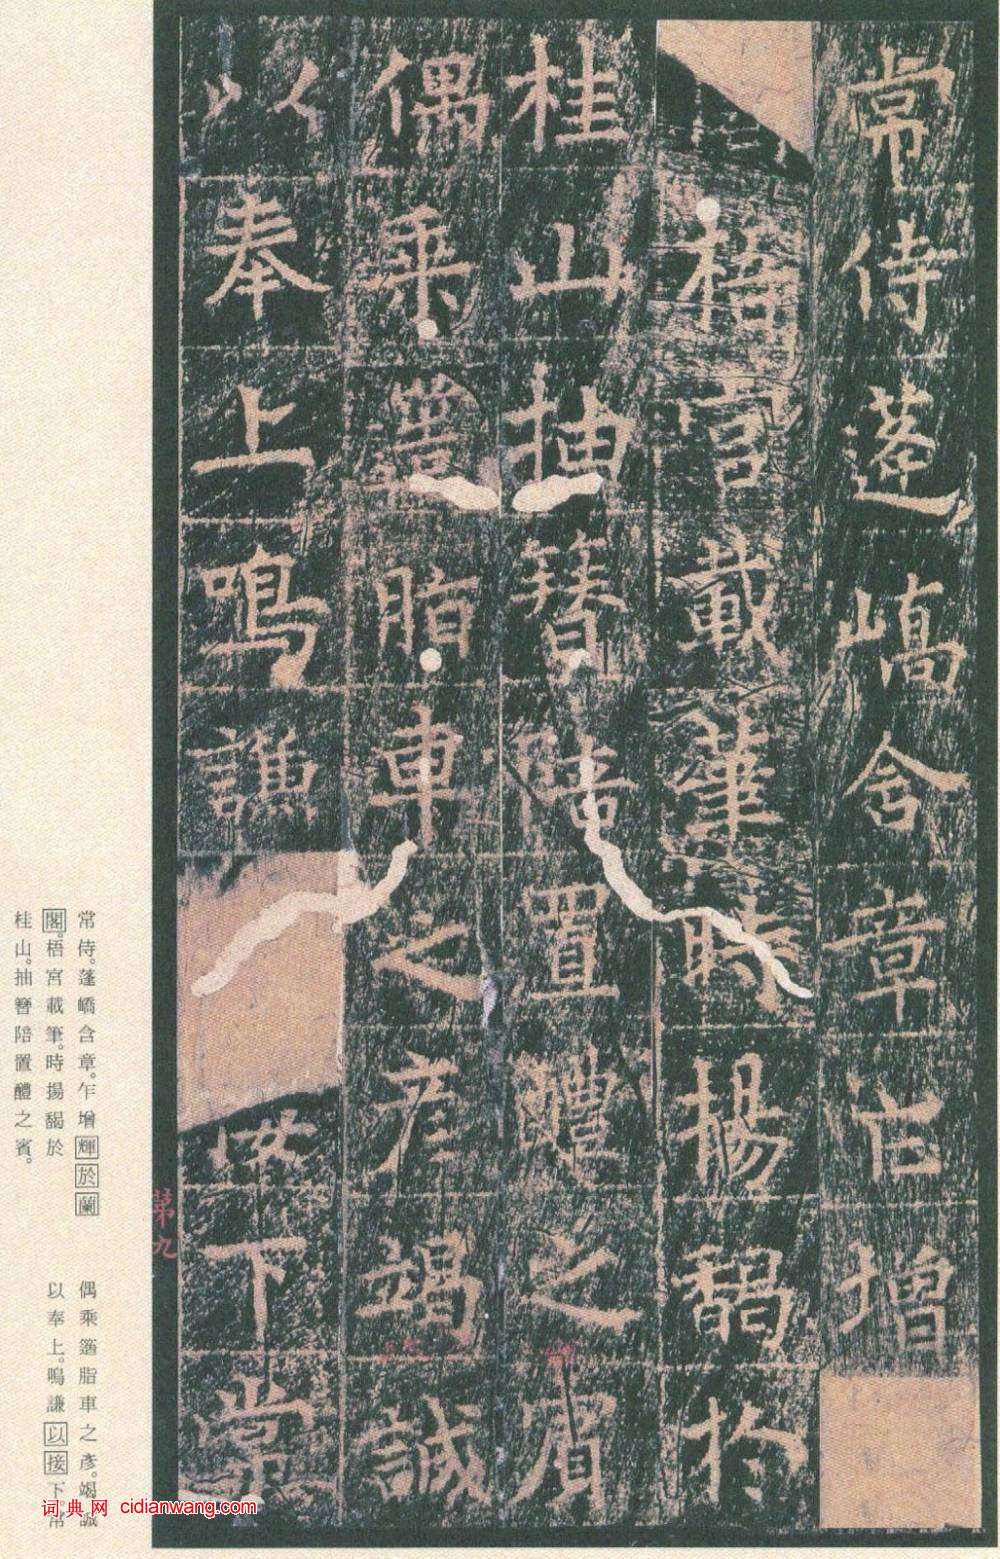 常侍蓬嶠含章乍增
梧宮載筆時揚馤於
桂山抽簪陪置醴之賓
偶乘簉脂車之彥竭誠
以奉上鳴謙接下常
第九
常侍。蓬嶠含章。乍增輝於蘭
閣。梧宮載筆。時揚馤於
桂山。抽簪陪置醴之賓。
偶乘簉脂車之彥。竭誠
以奉上。鳴謙以接下。常
词典网 cidianwang.com